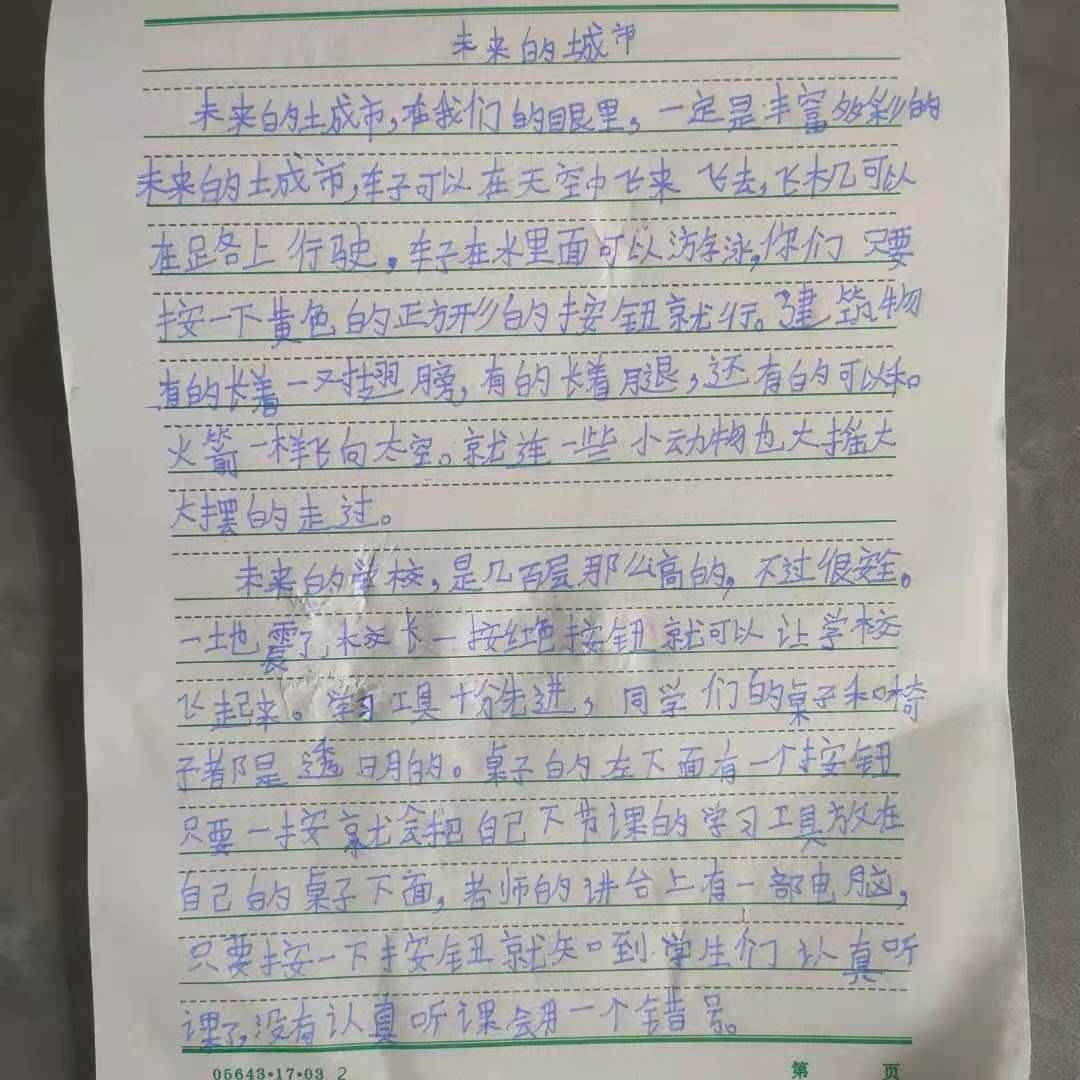 未来的城市
未来的城市，在我们的眼里，一定是丰富多彩的
未来的城市，车子可以在天空中飞来飞去，飞机可以
在路上行驶。车子在水里面可以游泳，你们只要
按一下黄色的正方形的按钮就行。建筑物
有的长着一对翅膀，有的长着腿，还有的可以和
火箭一样飞向太空。就连一些小动物也大摇大
大摆的走过。
未来的学校，是几百层那么高的，不过很安全。
一地震了，校长一按红色按钮就可以让学校
飞起来。学习工具十分先进，同学们的桌子和椅
子都是透明的。桌子的左下面有一个按钮
只要一按就会把自己下节课的学习工具放在
自己的桌子下面，老师的讲台上有一部电脑，
只要按一下按钮就知到学生们认真听
课了，没有认真听课会用一个错号。
05643·17·03 2
第 页